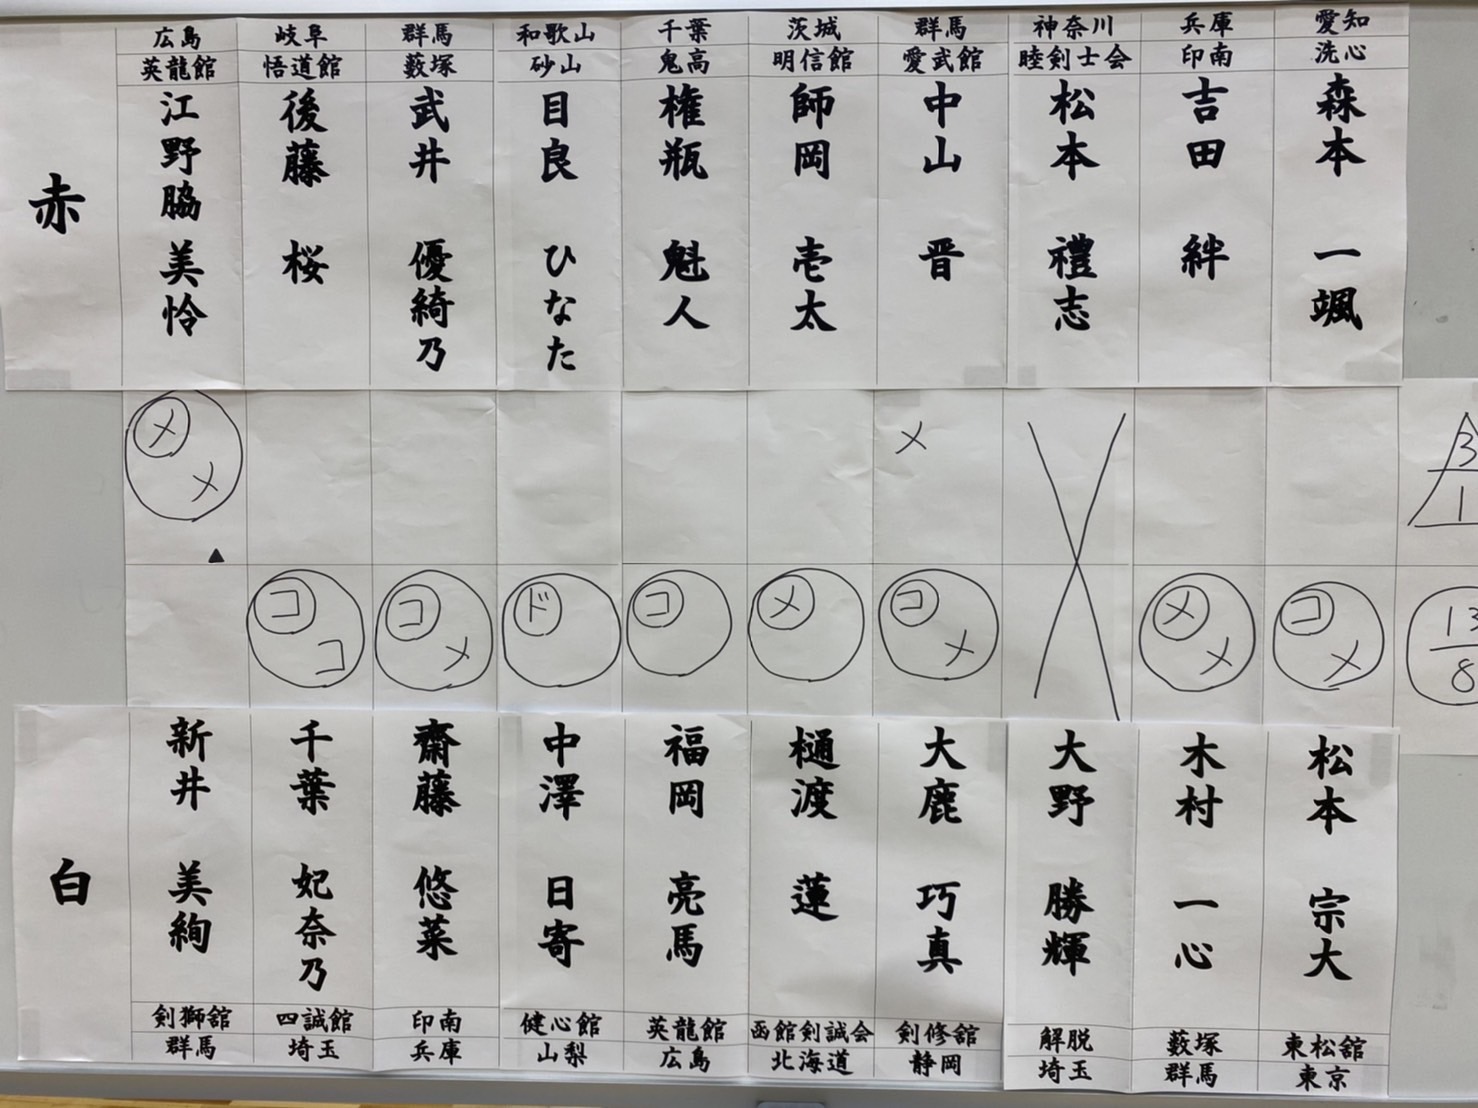 広島 岐阜 群馬 和歌山 千葉 茨城 群馬 神奈川 兵庫 愛知
英龍館 悟道館 藪塚 砂山 鬼高 明信館 愛武館 睦剣士会 印南 洗心
赤
江野脇 美怜
後藤 桜
武井 優綺乃
目良 ひなた
権瓶 魁人
師岡 壱太
中山 晋
松本 禮志
吉田 絆
森本 一颯
メ メ メ
▲
3
1
コ コ コ メ ド コ メ コ メ メ メ コ メ
13
8
白
新井 美絢
千葉 妃奈乃
齋藤 悠菜
中澤 日寄
福岡 亮馬
樋渡 蓮
大鹿 巧真
大野 勝輝
木村 一心
松本 宗大
剣獅舘 四誠館 印南 健心館 英龍館 函館剣誠会 剣修舘 解脱 藪塚 東松舘
群馬 埼玉 兵庫 山梨 広島 北海道 静岡 埼玉 群馬 東京